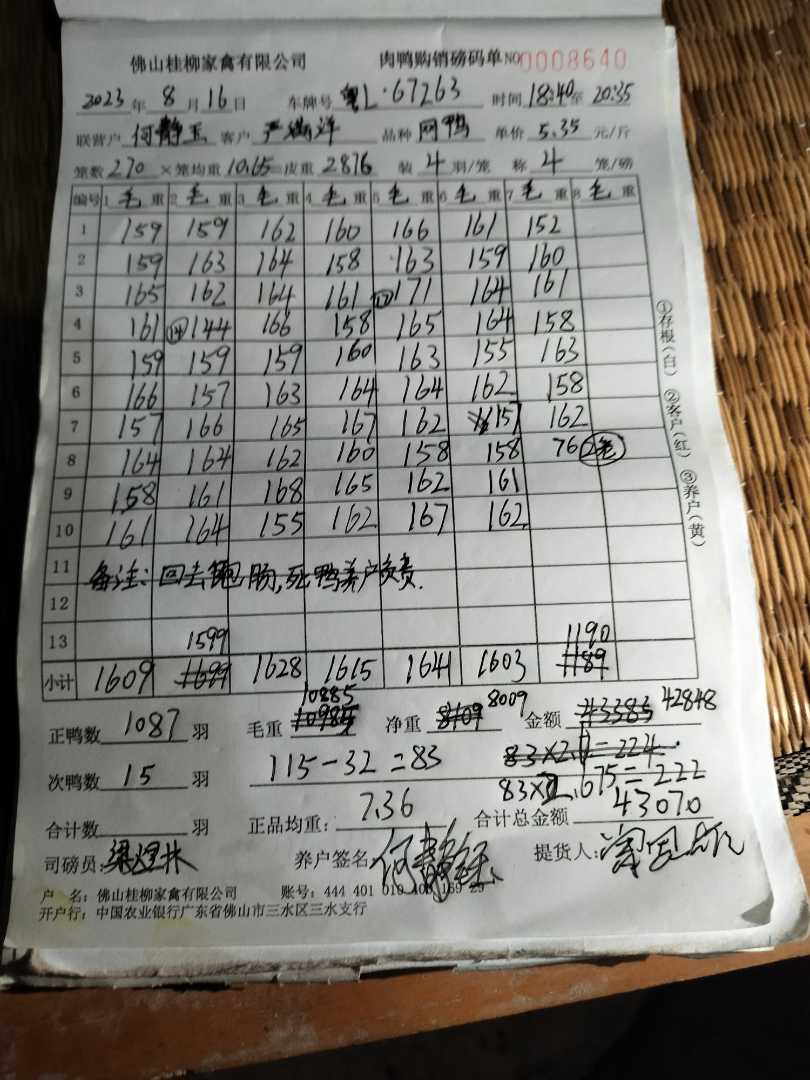 佛山桂柳家禽有限公司 肉鸭购销磅码单 NO 0008640
2023年 8月16日 车牌号 粤L·67263 时间 18:40至 20:35
联营户 何静玉 客户 品种 网鸭 单价 5.35 元/斤
笼数 270 ×笼均重 10.65 皮重 2876 装 4 羽/笼 称 4 笼/磅
编号 1 毛 重 2 毛 重 3 毛 重 4 毛 重 5 毛 重 6 毛 重 7 毛 重 8 毛 重
1 159 159 162 160 166 161 152
2 159 163 164 158 163 159 160
3 165 162 164 161 171 164 161
4 161 ⑭144 166 158 165 164 158
5 159 159 159 160 163 155 163
6 166 157 163 164 164 162 158
7 157 166 165 167 162 157 162
8 164 164 162 160 158 158 76 2笼
9 158 161 168 165 162 161
10 161 164 155 162 167 162
11 备注: 回去 肠,死鸭养户负责.
12
13 1599 1190
小计 1609 1699 1628 1615 1641 1603 1189
10885 8009
正鸭数 1087 羽 毛重 10985 净重 8109 金额 43383 42848
次鸭数 15 羽 115-32=83 83×2.7=224
83×2.675=222
合计数 羽 正品均重: 7.36 合计总金额 43070
司磅员: 养户签名: 提货人:
户 名: 佛山桂柳家禽有限公司 账号: 444 401 010 400 169 29
开户行: 中国农业银行广东省佛山市三水区三水支行
①存根(白) ②客户(红) ③养户(黄)